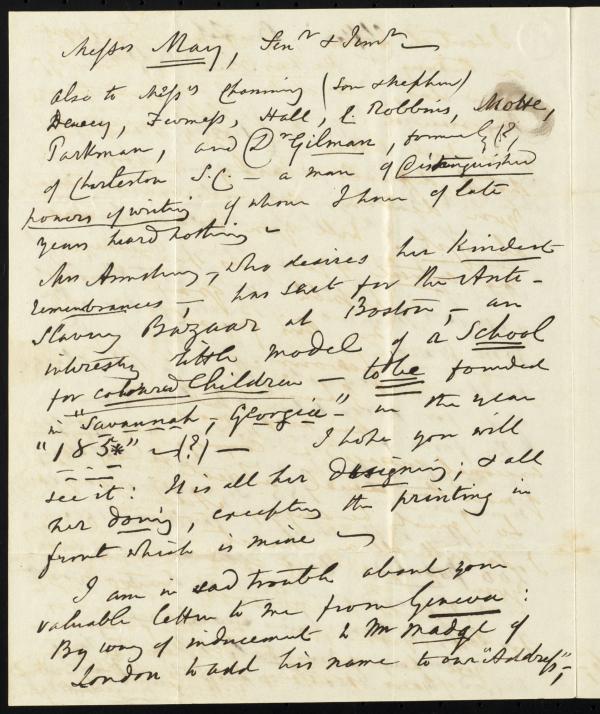 Messrs May, Senr & Junr
also to Messrs Channing (Son & nephew)
Dewey, Furness, Hall, C. Robbins, Motte,
Parkman, and Dr Gilman, formerly (?)
of Charleston S.C. – a man of distinguished
powers of writing of whom I have of late
years heard nothing –
Mrs Armstrong, who desires her kindest
remembrances, – has sent for the Anti-
Slavery Bazaar at Boston, – an
interesting little model of a School
for coloured Children – to be founded
in "Savannah, Georgia" – in the year
"185*" – (?) – I hope you will
see it: It is all her designing; & all
her doing, excepting the printing in
front which is mine –
I am in sad trouble about your
valuable letter to me from Geneva:
By way of inducement to Mr Madge of
London to add his name to our "Address",